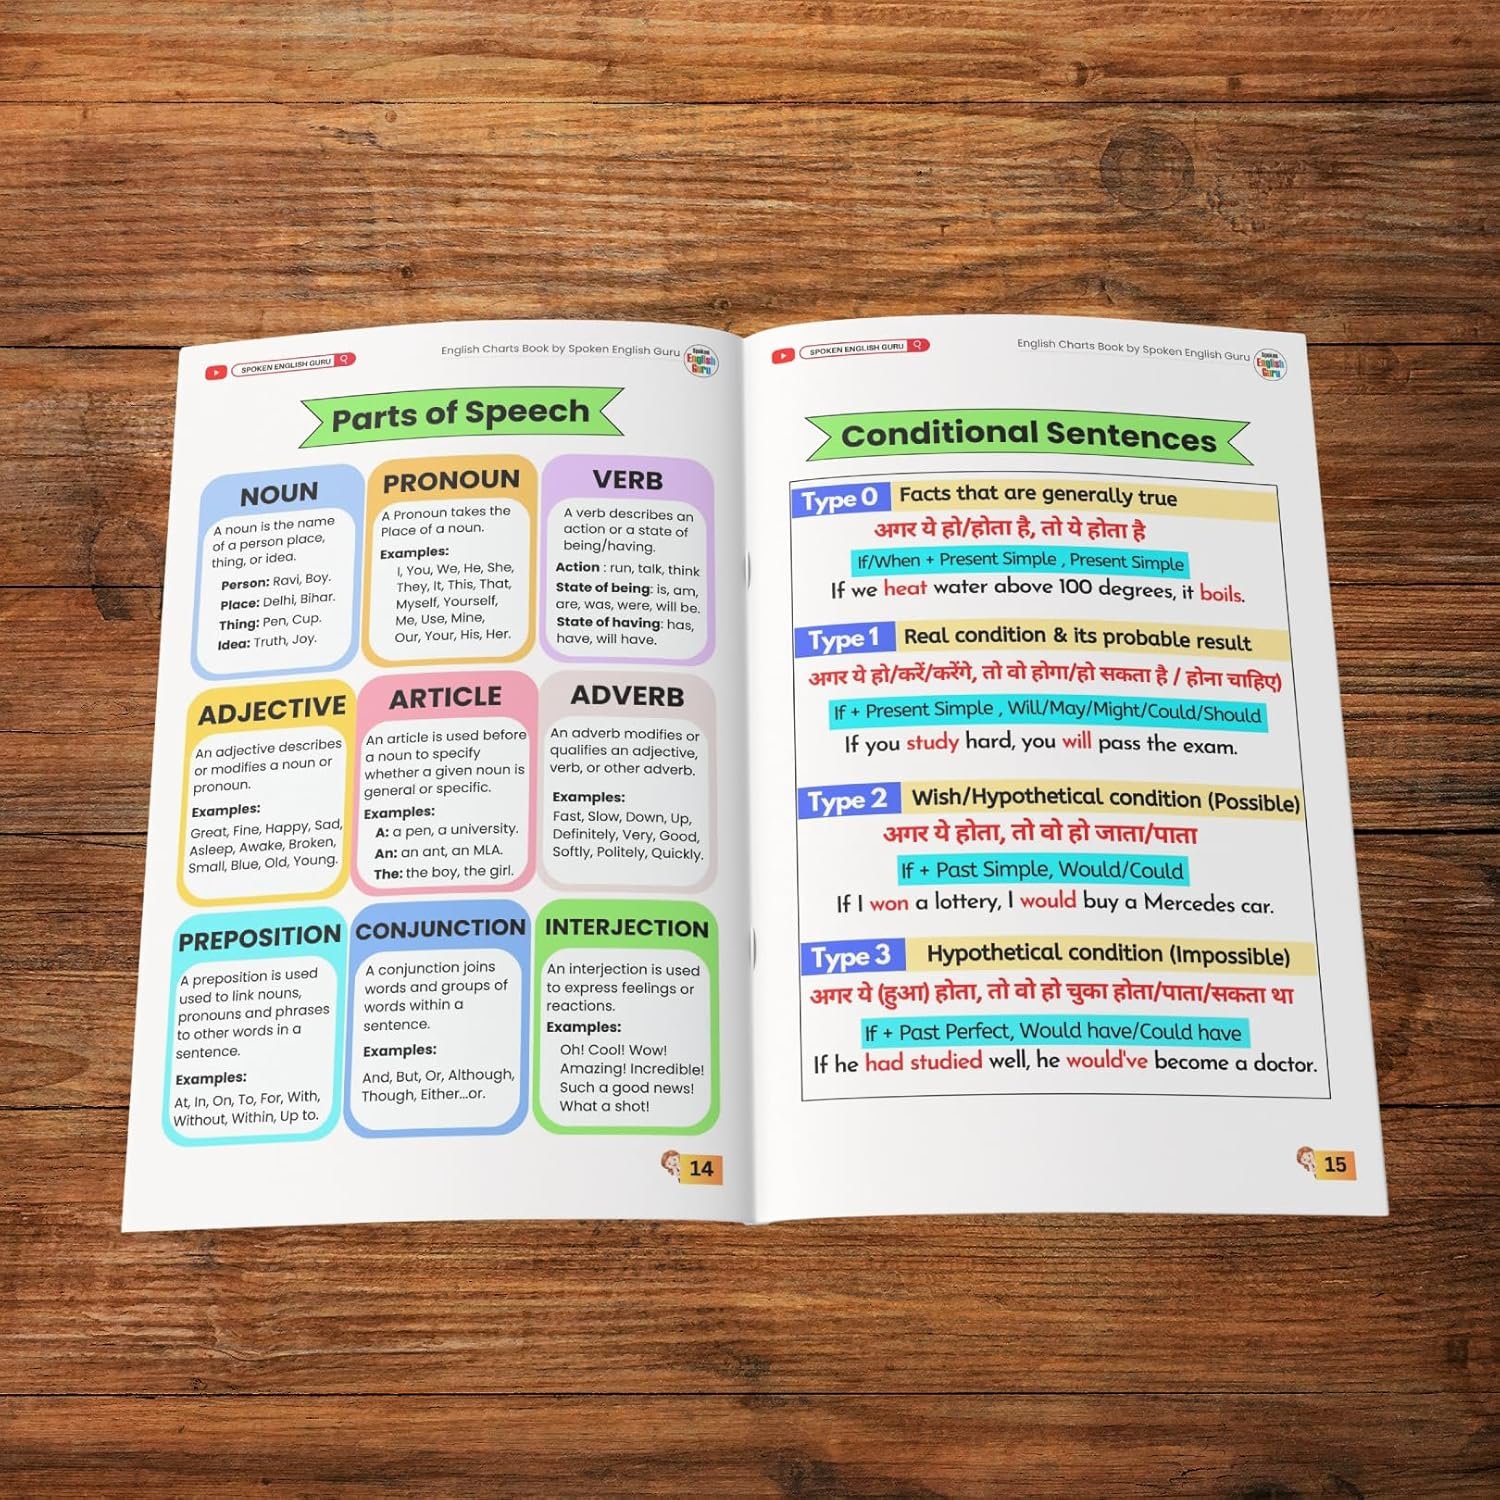 SPOKEN ENGLISH GURU
English Charts Book by Spoken English Guru
Spoken
English
Guru
Parts of Speech
NOUN
A noun is the name
of a person place,
thing, or idea.
Person: Ravi, Boy.
Place: Delhi, Bihar.
Thing: Pen, Cup.
Idea: Truth, Joy.
PRONOUN
A Pronoun takes the
Place of a noun.
Examples:
I, You, We, He, She,
They, It, This, That,
Myself, Yourself,
Me, Use, Mine,
Our, Your, His, Her.
VERB
A verb describes an
action or a state of
being/having.
Action : run, talk, think
State of being: is, am,
are, was, were, will be.
State of having: has,
have, will have.
ADJECTIVE
An adjective describes
or modifies a noun or
pronoun.
Examples:
Great, Fine, Happy, Sad,
Asleep, Awake, Broken,
Small, Blue, Old, Young.
ARTICLE
An article is used before
a noun to specify
whether a given noun is
general or specific.
Examples:
A: a pen, a university.
An: an ant, an MLA.
The: the boy, the girl.
ADVERB
An adverb modifies or
qualifies an adjective,
verb, or other adverb.
Examples:
Fast, Slow, Down, Up,
Definitely, Very, Good,
Softly, Politely, Quickly.
PREPOSITION
A preposition is used
used to link nouns,
pronouns and phrases
to other words in a
sentence.
Examples:
At, In, On, To, For, With,
Without, Within, Up to.
CONJUNCTION
A conjunction joins
words and groups of
words within a
sentence.
Examples:
And, But, Or, Although,
Though, Either...or.
INTERJECTION
An interjection is used
to express feelings or
reactions.
Examples:
Oh! Cool! Wow!
Amazing! Incredible!
Such a good news!
What a shot!
14
SPOKEN ENGLISH GURU
English Charts Book by Spoken English Guru
Spoken
English
Guru
Conditional Sentences
Type 0 Facts that are generally true
अगर ये हो/होता है, तो ये होता है
If/When + Present Simple , Present Simple
If we heat water above 100 degrees, it boils.
Type 1 Real condition & its probable result
अगर ये हो/करें/करेंगे, तो वो होगा/हो सकता है / होना चाहिए)
If + Present Simple , Will/May/Might/Could/Should
If you study hard, you will pass the exam.
Type 2 Wish/Hypothetical condition (Possible)
अगर ये होता, तो वो हो जाता/पाता
If + Past Simple, Would/Could
If I won a lottery, I would buy a Mercedes car.
Type 3 Hypothetical condition (Impossible)
अगर ये (हुआ) होता, तो वो हो चुका होता/पाता/सकता था
If + Past Perfect, Would have/Could have
If he had studied well, he would've become a doctor.
15